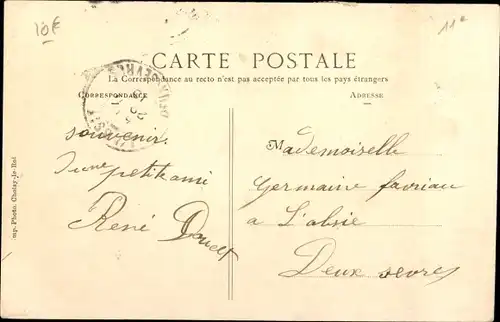 10€
11e
CARTE POSTALE
La Correspondance au recto n'est pas acceptée par tous les pays étrangers
CORRESPONDANCE
ADRESSE
souvenir
d'une petite ami
René Doucet
Mademoiselle
Germaine favriau
a L'absie
Deux sevres
Imp.-Photo. Choisy-le-Roi